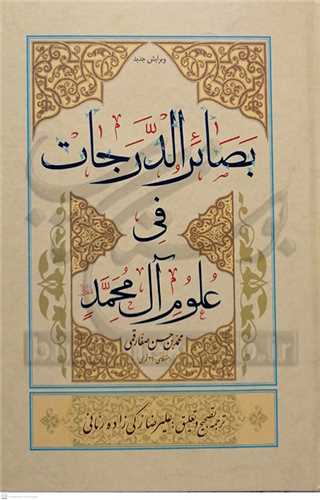 ویرایش جدید
بَصَائِرُ الدَّرَجَات
فِی
عُلُومِ آلِ مُحَمَّدٍ
محمد بن حسن صفار قمی
ترجمه، تصحیح و تعلیق: علیرضا زکی زاده رنانی